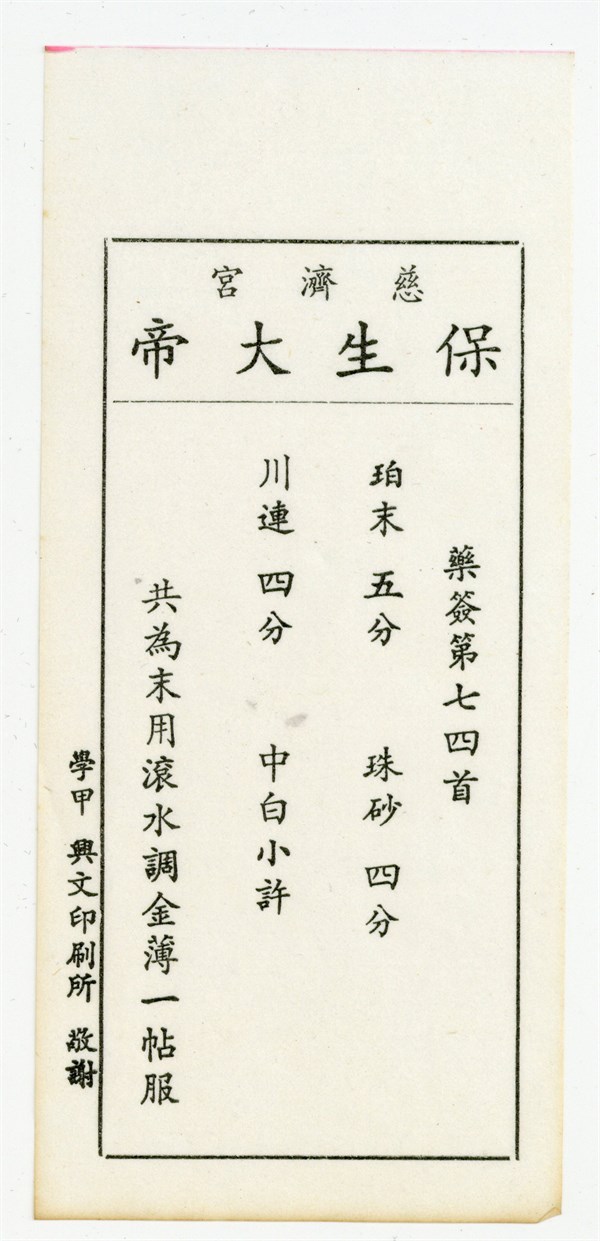 慈濟宮
保生大帝
藥簽第七四首
珀末 五分 珠砂 四分
川連 四分 中白小許
共為末用滾水調金薄一帖服
學甲 興文印刷所 敬謝